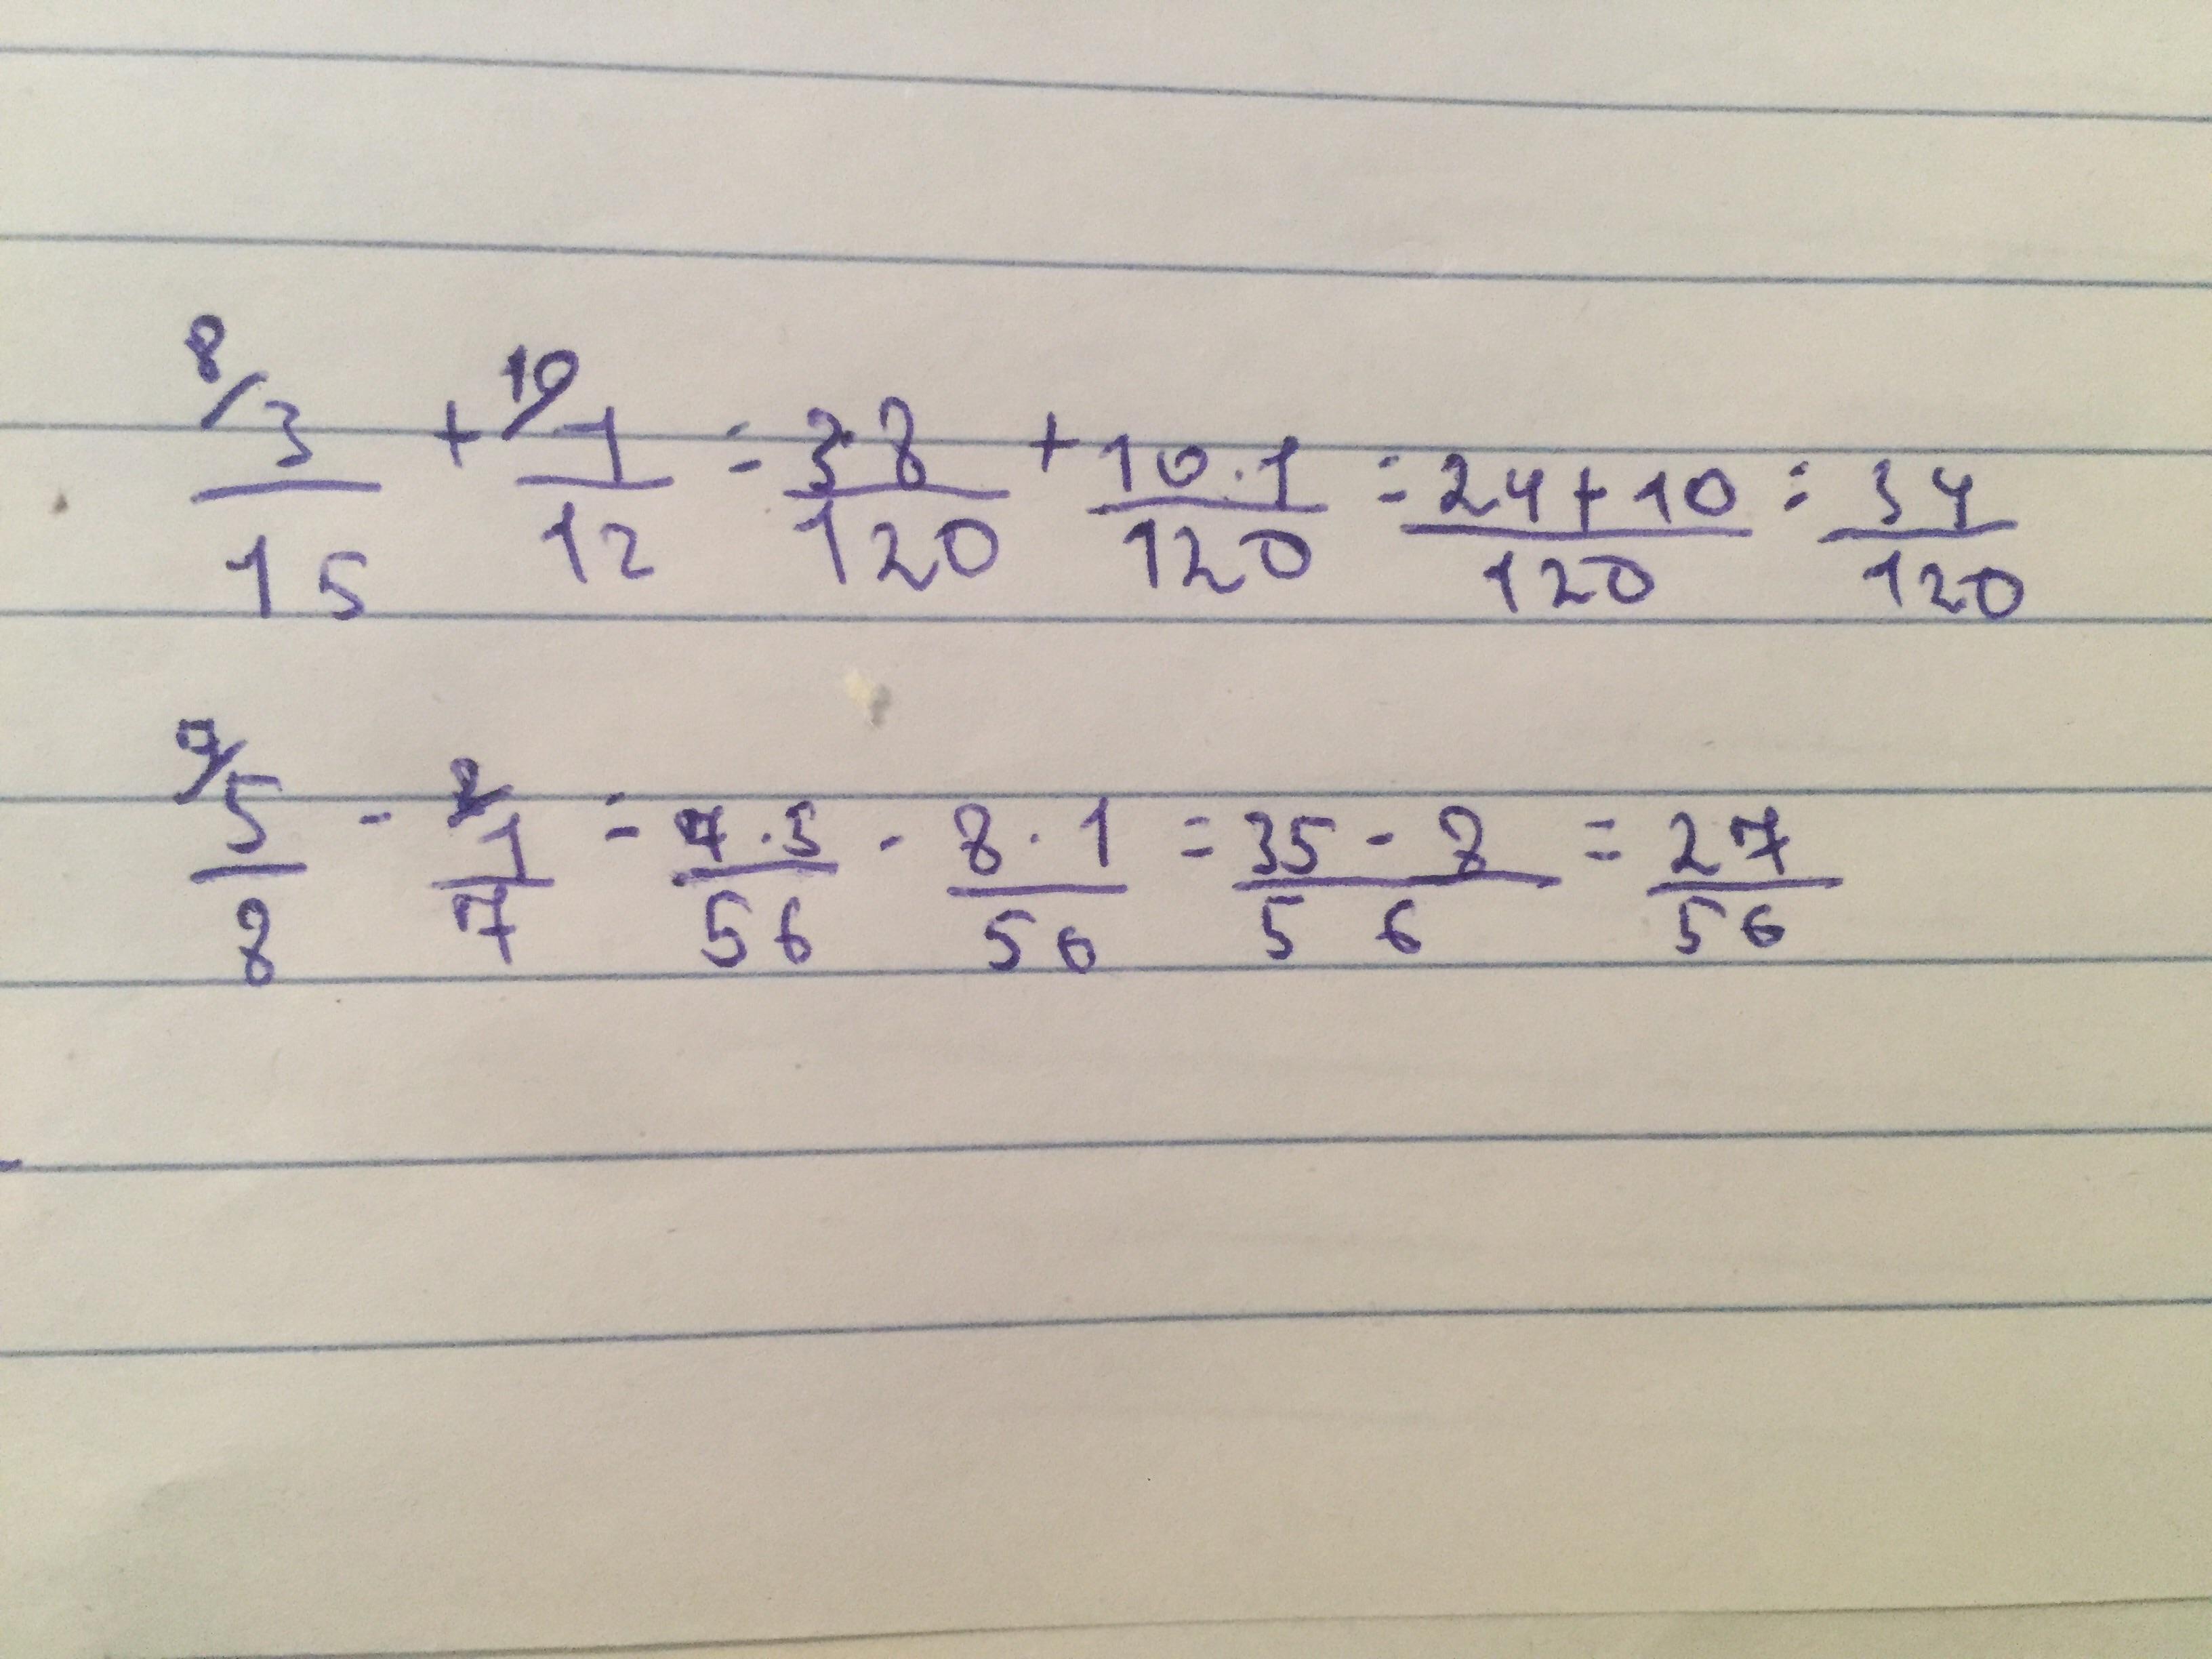 8/ 3/15 + 10/ 1/12 = 3·8/120 + 10·1/120 = 24+10/120 = 34/120
7/ 5/8 - 8/ 1/7 = 7·5/56 - 8·1/56 = 35-8/56 = 27/56